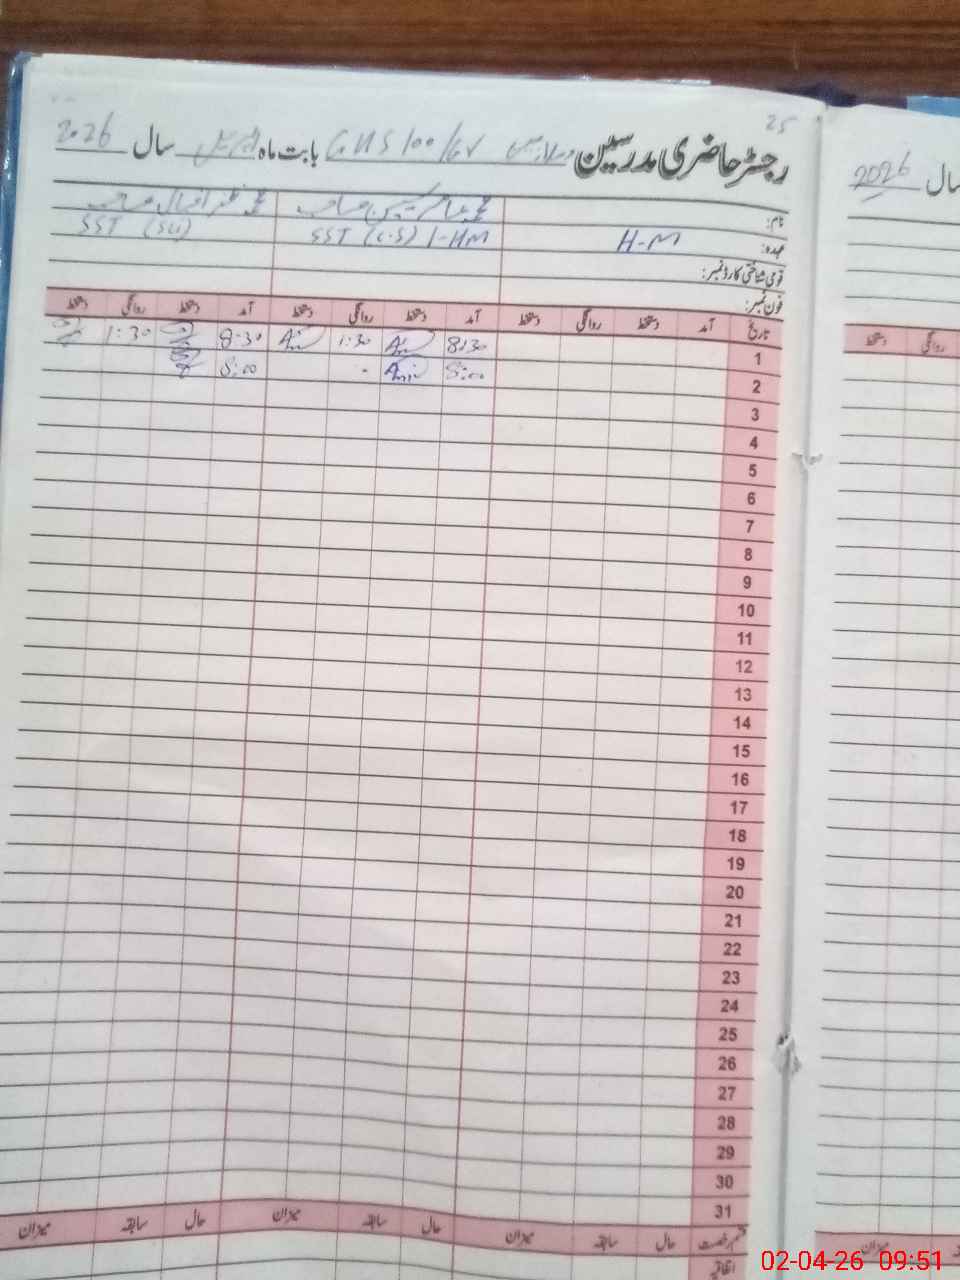 25
رجسٹر حاضری مدرسین GHS 100/6R بابت ماہ اپریل سال 2026
نام: محمد اقبال صاحب
عہدہ: H-M SST (C.S) I-HM SST
قومی شناختی کارڈ نمبر:
فون نمبر:
تاریخ آمد دستخط روانگی دستخط آمد دستخط روانگی دستخط آمد دستخط روانگی دستخط
1 8:30 1:30 8:30 1:30
2 8:00 8:00
3
4
5
6
7
8
9
10
11
12
13
14
15
16
17
18
19
20
21
22
23
24
25
26
27
28
29
30
31
قسم رخصت حال سابقہ میزان حال سابقہ میزان حال سابقہ میزان
اتفاقیہ
سال 2026
روانگی دستخط
میزان
02-04-26 09:51